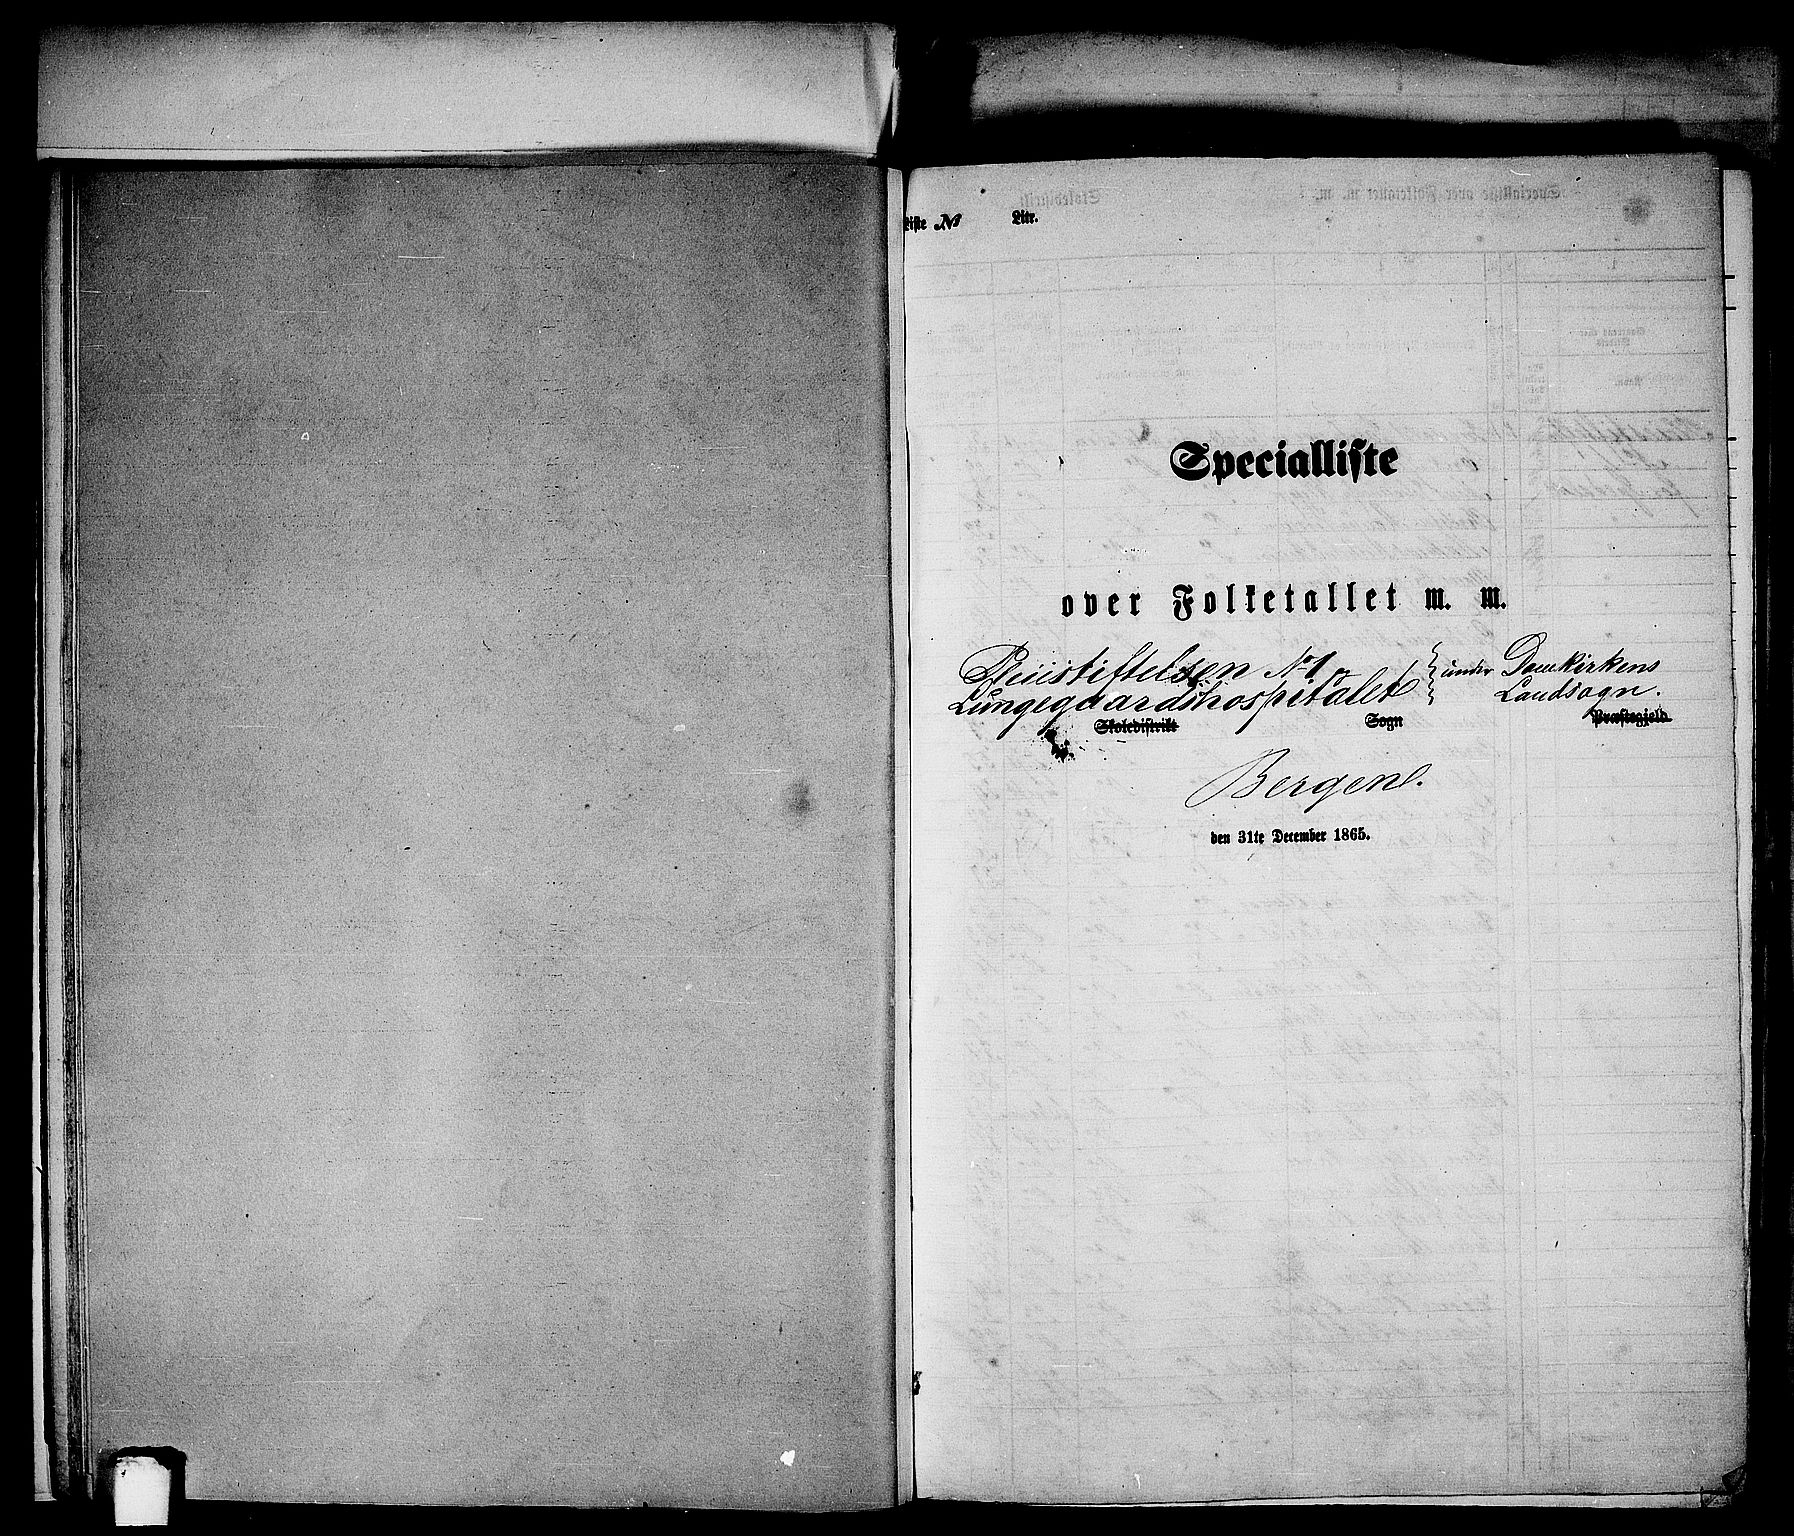 Liste № Litr.
Specialliste
over Folketallet m. m.
Pleiestiftelsen No 1 } under Domkirkens
Lungegaardshospitalet Landsogn.
Skoledistrikt Sogn Præstegjeld
Bergen.
den 31te December 1865.